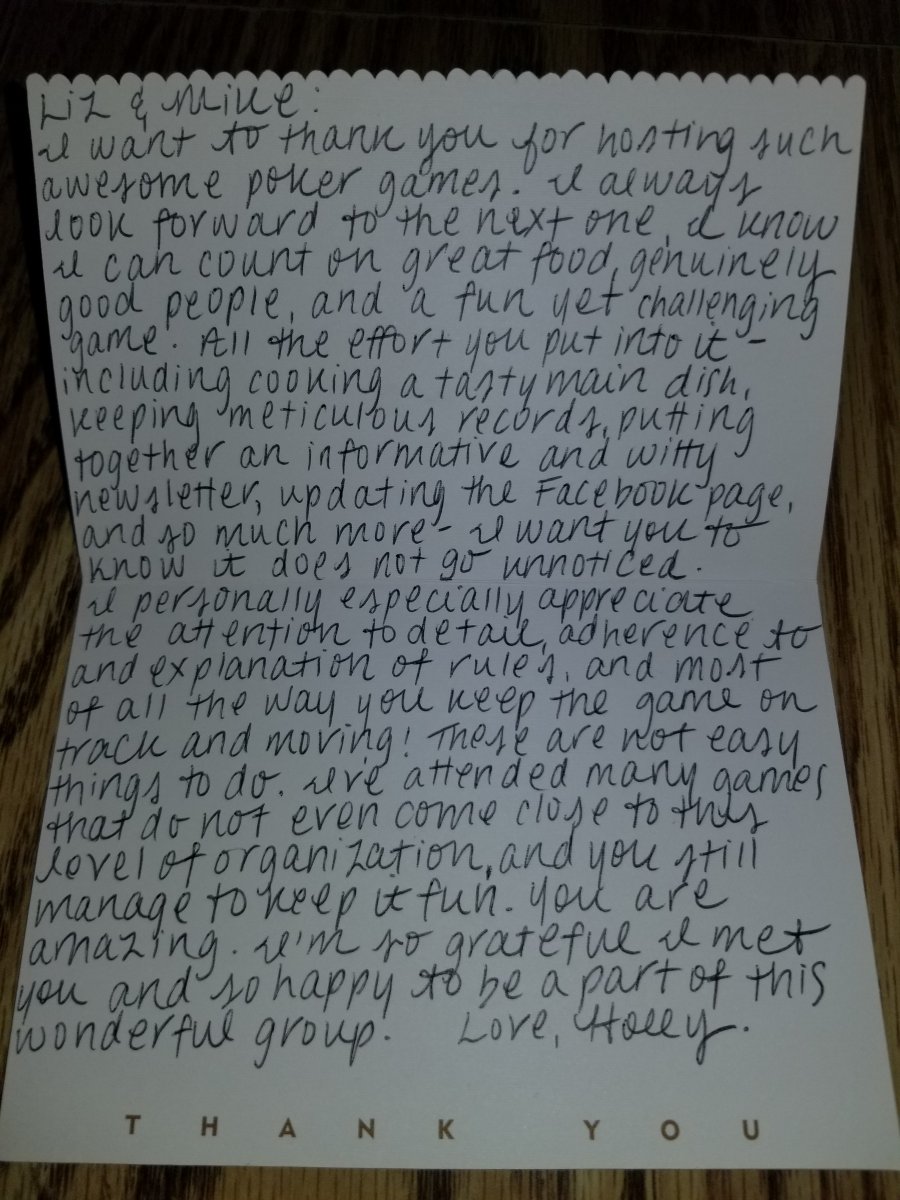 Liz & Mike:
I want to thank you for hosting such
awesome poker games. I always
look forward to the next one, I know
I can count on great food, genuinely
good people, and a fun yet challenging
game. All the effort you put into it -
including cooking a tasty main dish,
keeping meticulous records, putting
together an informative and witty
newsletter, updating the Facebook page,
and so much more - I want you to
know it does not go unnoticed.
I personally especially appreciate
the attention to detail, adherence to
and explanation of rules, and most
of all the way you keep the game on
track and moving! These are not easy
things to do. I've attended many games
that do not even come close to this
level of organization, and you still
manage to keep it fun. You are
amazing. I'm so grateful I met
you and so happy to be a part of this
wonderful group. Love, Holly.
THANK YOU